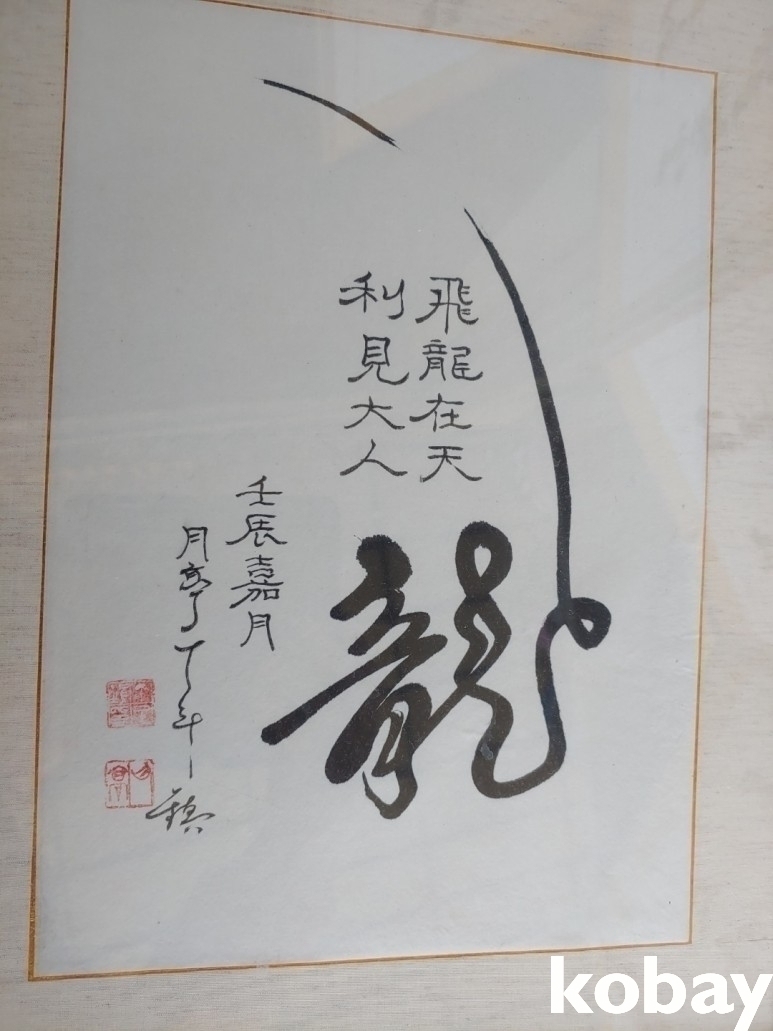 龍
飛龍在天
利見大人
壬辰嘉月
月亭
kobay